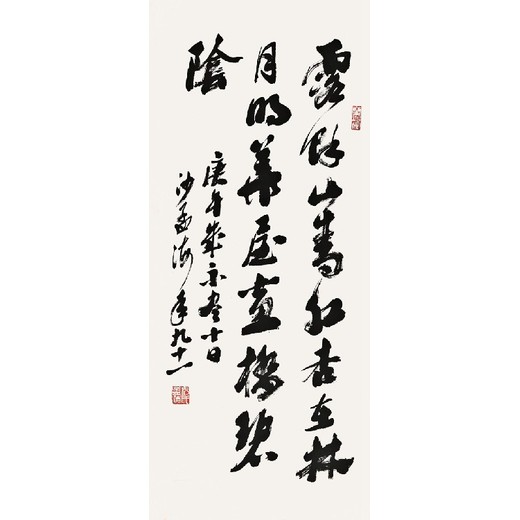 露餘山青紅杏在林
月明華屋畫橋碧
陰
庚午歲不盡十日
沙孟海年九十一